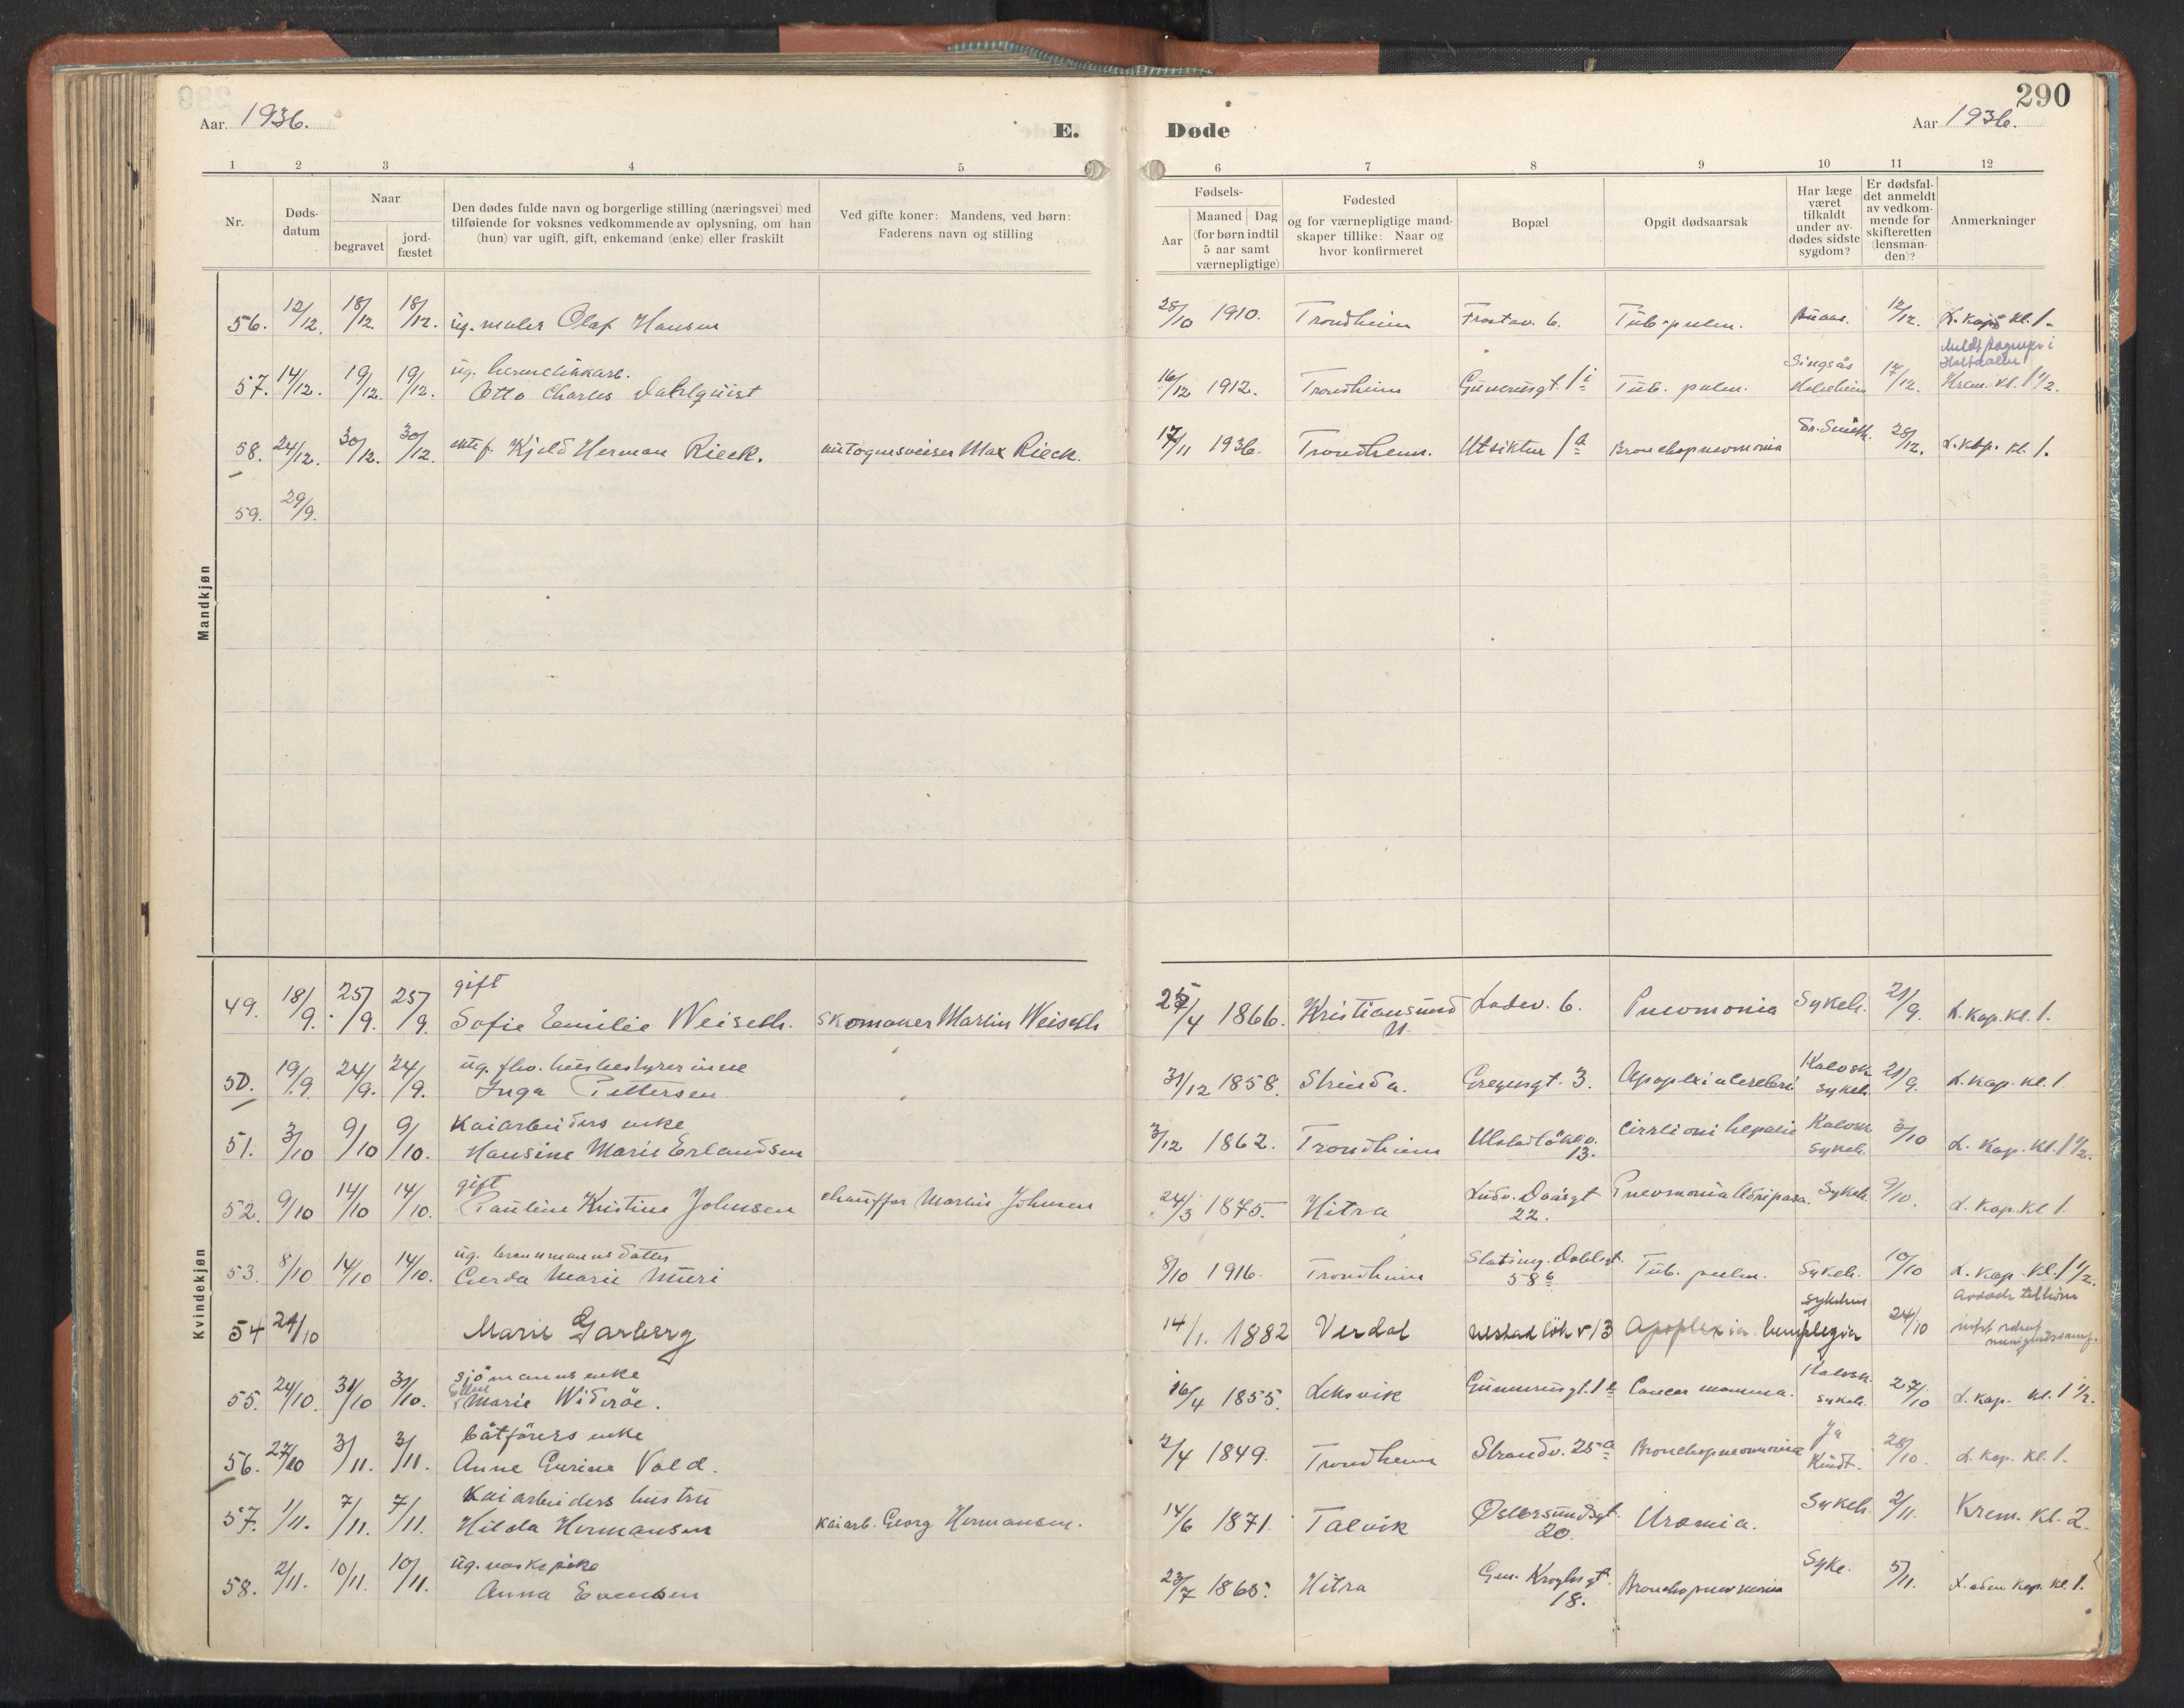 290
Aar 1936.
E. Døde
Aar 1936.
1 2 3 4 5 6 7 8 9 10 11 12
Nr.
Døds-
datum
Naar
begravet
jord-
fæstet
Den dødes fulde navn og borgerlige stilling (næringsvei) med
tilføiende for voksnes vedkommende av oplysning, om han
(hun) var ugift, gift, enkemand (enke) eller fraskilt
Ved gifte koner: Mandens, ved børn:
Faderens navn og stilling
Fødsels-
Aar
Maaned Dag
(for børn indtil
5 aar samt
værnepligtige)
Fødested
og for værnepligtige mand-
skaper tillike: Naar og
hvor konfirmeret
Bopæl
Opgit dødsaarsak
Har læge
været
tilkaldt
under av-
dødes sidste
sygdom?
Er dødsfal-
det anmeldt
av vedkom-
mende for
skifteretten
(lensman-
den)?
Anmerkninger
Mandkjøn
56. 12/12. 18/12. 18/12. ug. maler Olaf Hansen 28/10 1910. Trondheim Frostav. 6. Tub. pulm. 12/12. L. kap. kl. 1.
57. 14/12. 19/12. 19/12. ug.
Otto Charles Dahlquist 16/12 1912. Trondheim Gunerusgt. 1 i Tub. pulm. Singsås 17/12. Krem. kl. 1 1/2.
58. 24/12. 30/12. 30/12. Kjeld Herman Rieck. autogensveiser Max Rieck. 17/11 1936. Trondheim. Utsikten 1 a Bronchopneumonia Dr. Smith. 28/12. L. kap. kl. 1.
59. 29/9.
Kvindekjøn
49. 18/9. 25/9. 25/9. gift
Sofie Emilie Weiseth. skomaker Martin Weiseth 25/4 1866. Kristiansund N. Ladev. 6. Pneumonia Sykeh. 21/9. L. kap. kl. 1.
50. 19/9. 24/9. 24/9. ug. fhv. husbestyrerinne
Inga Pettersen 31/12 1858. Strinda. Gregusgt. 3. Apoplexia cerebri Kalvsk. sykeh. 21/9. L. kap. kl. 1.
51. 3/10 9/10 9/10. Kaiarbeiders enke
Hansine Marie Erlandsen 3/12 1862. Trondheim Ulstadløkv. 13. Kalvsk. sykeh. 3/10 L. kap. kl. 1 1/2.
52. 9/10 14/10 14/10. gift
Pauline Kristine Johnsen chauffør Martin Johnsen 24/3 1875. Hitra Ludv. Daasgt 22. Pneumonia Sykeh. 9/10. L. kap. kl. 1.
53. 8/10 14/10 14/10. ug. brannmanns datter
Gerda Marie Muri 8/10 1916. Trondheim Statsing. Dahlsgt. 58 b Tub. pulm. Sykeh. 10/10 L. kap. kl. 1 1/2.
54 21/10 Marie Garberg 14/1. 1882 Verdal Ulstadløkv 13 Apoplexia hemiplegia sykehus 24/10
55. 24/10. 31/10 31/10. sjømanns enke
Ellen Marie Widerøe. 16/4 1855. Leksvik Gunnerusgt. 1 Cancer mamma. Kalvsk. sykeh. 27/10 L. kap. kl. 1 1/2.
56. 27/10 3/11. 3/11. båtførers enke
Anne Gurine Vold. 2/4 1849. Trondheim Strandv. 25 a Bronchopneumonia Ja 28/10. L. kap. kl. 1.
57. 1/11. 7/11. 7/11. Kaiarbeiders hustru
Hilda Hermansen kaiarb. Georg Hermansen. 14/6 1871. Talvik Østersundsgt. 20. Uræmia. Sykeh. 2/11. Krem. kl. 2.
58. 2/11. 10/11. 10/11. ug. vaskepike
Anna Evensen 23/7 1865. Hitra Gen. Kroghsgt. 18. Bronchopneumonia Syke. 5/11. kap. kl. 1.